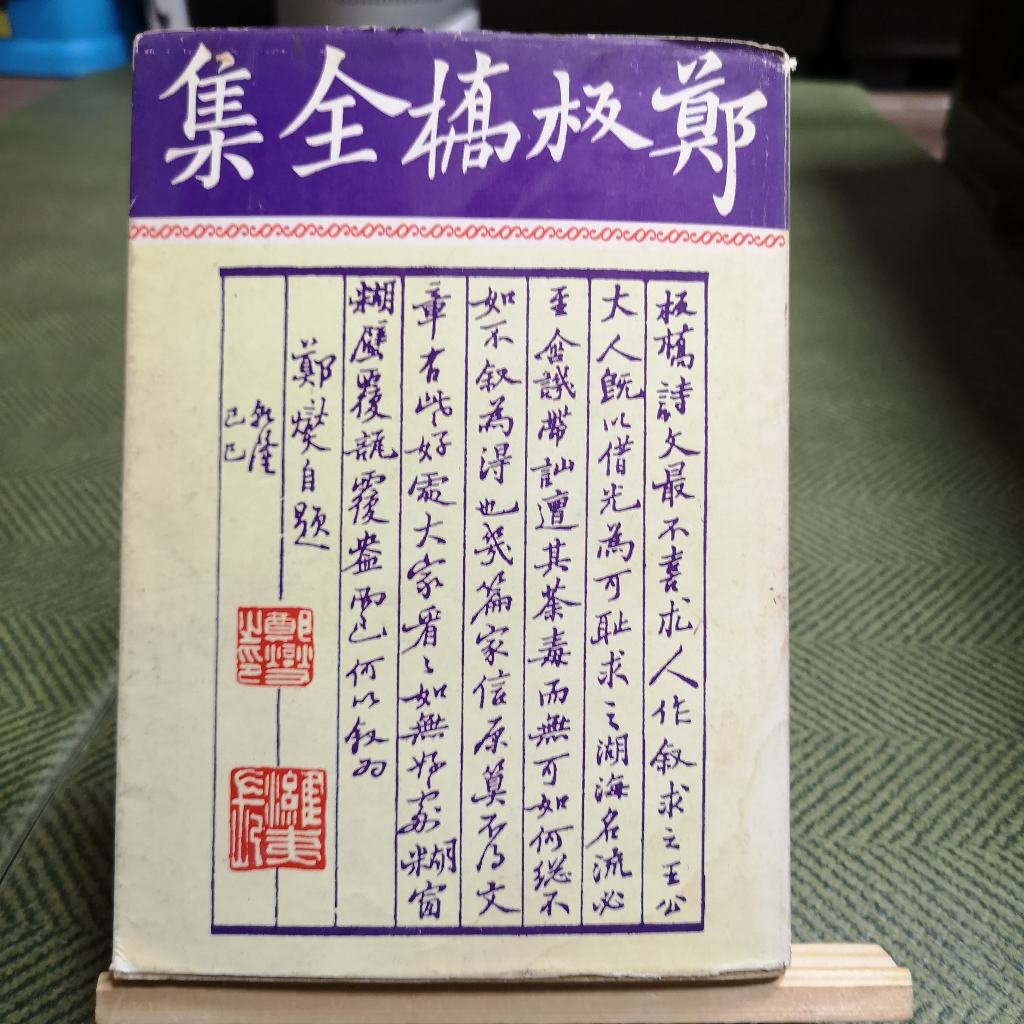 鄭板橋全集
板橋詩文最不喜求人作叙求之王公
大人既以借光為可恥求之湖海名流必
至含譏帶訕遭其荼毒而無可如何總不
如不叙為得也幾篇家信原算不得文
章有些好處大家看〻如無好處糊窗
糊壁覆瓿覆盎而已何以叙為
鄭燮自題
乾隆
己巳
鄭燮之印
濰夷長